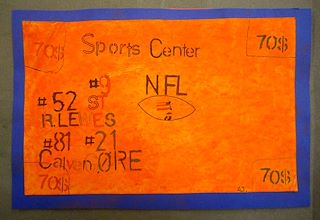 70$
70$
Sports Center
#9
NFL
#52
ST
R.LEWES
#81 #21
Calven ØRE
70$
70$